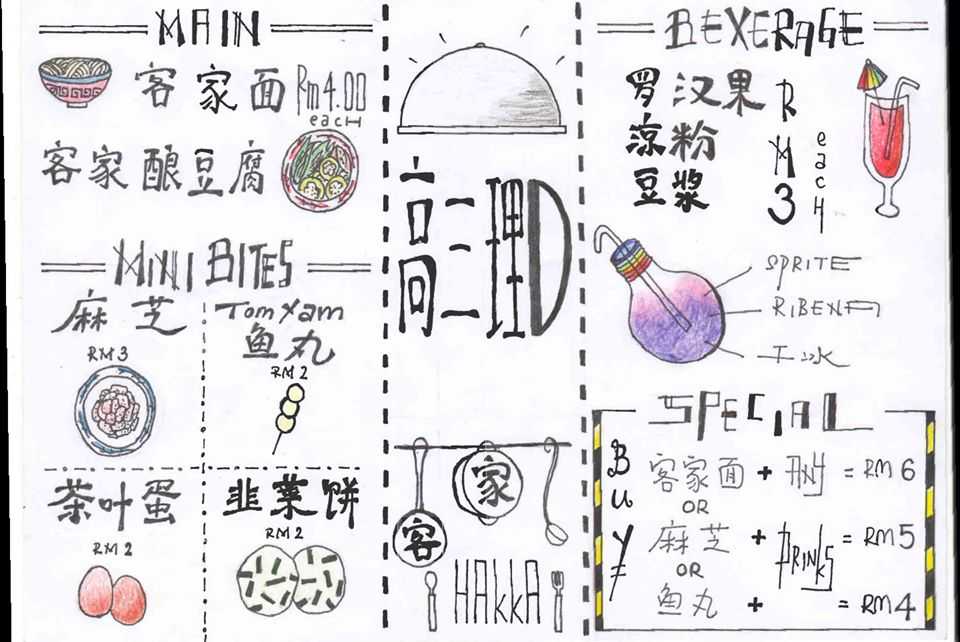 MAIN
客家面 Rm4.00
each
客家酿豆腐
MINI BITES
麻芝
RM3
Tom Yam
鱼丸
RM2
茶叶蛋
RM2
韭菜饼
RM2
高二理D
家
客
HAkkA
BEVERAGE
罗汉果
凉粉
豆浆
RM3
eacH
SPRITE
RIBENA
SPECIAL
Buy
客家面 + ANY = RM6
OR
麻芝 + DRINKS = RM5
OR
鱼丸 + = RM4